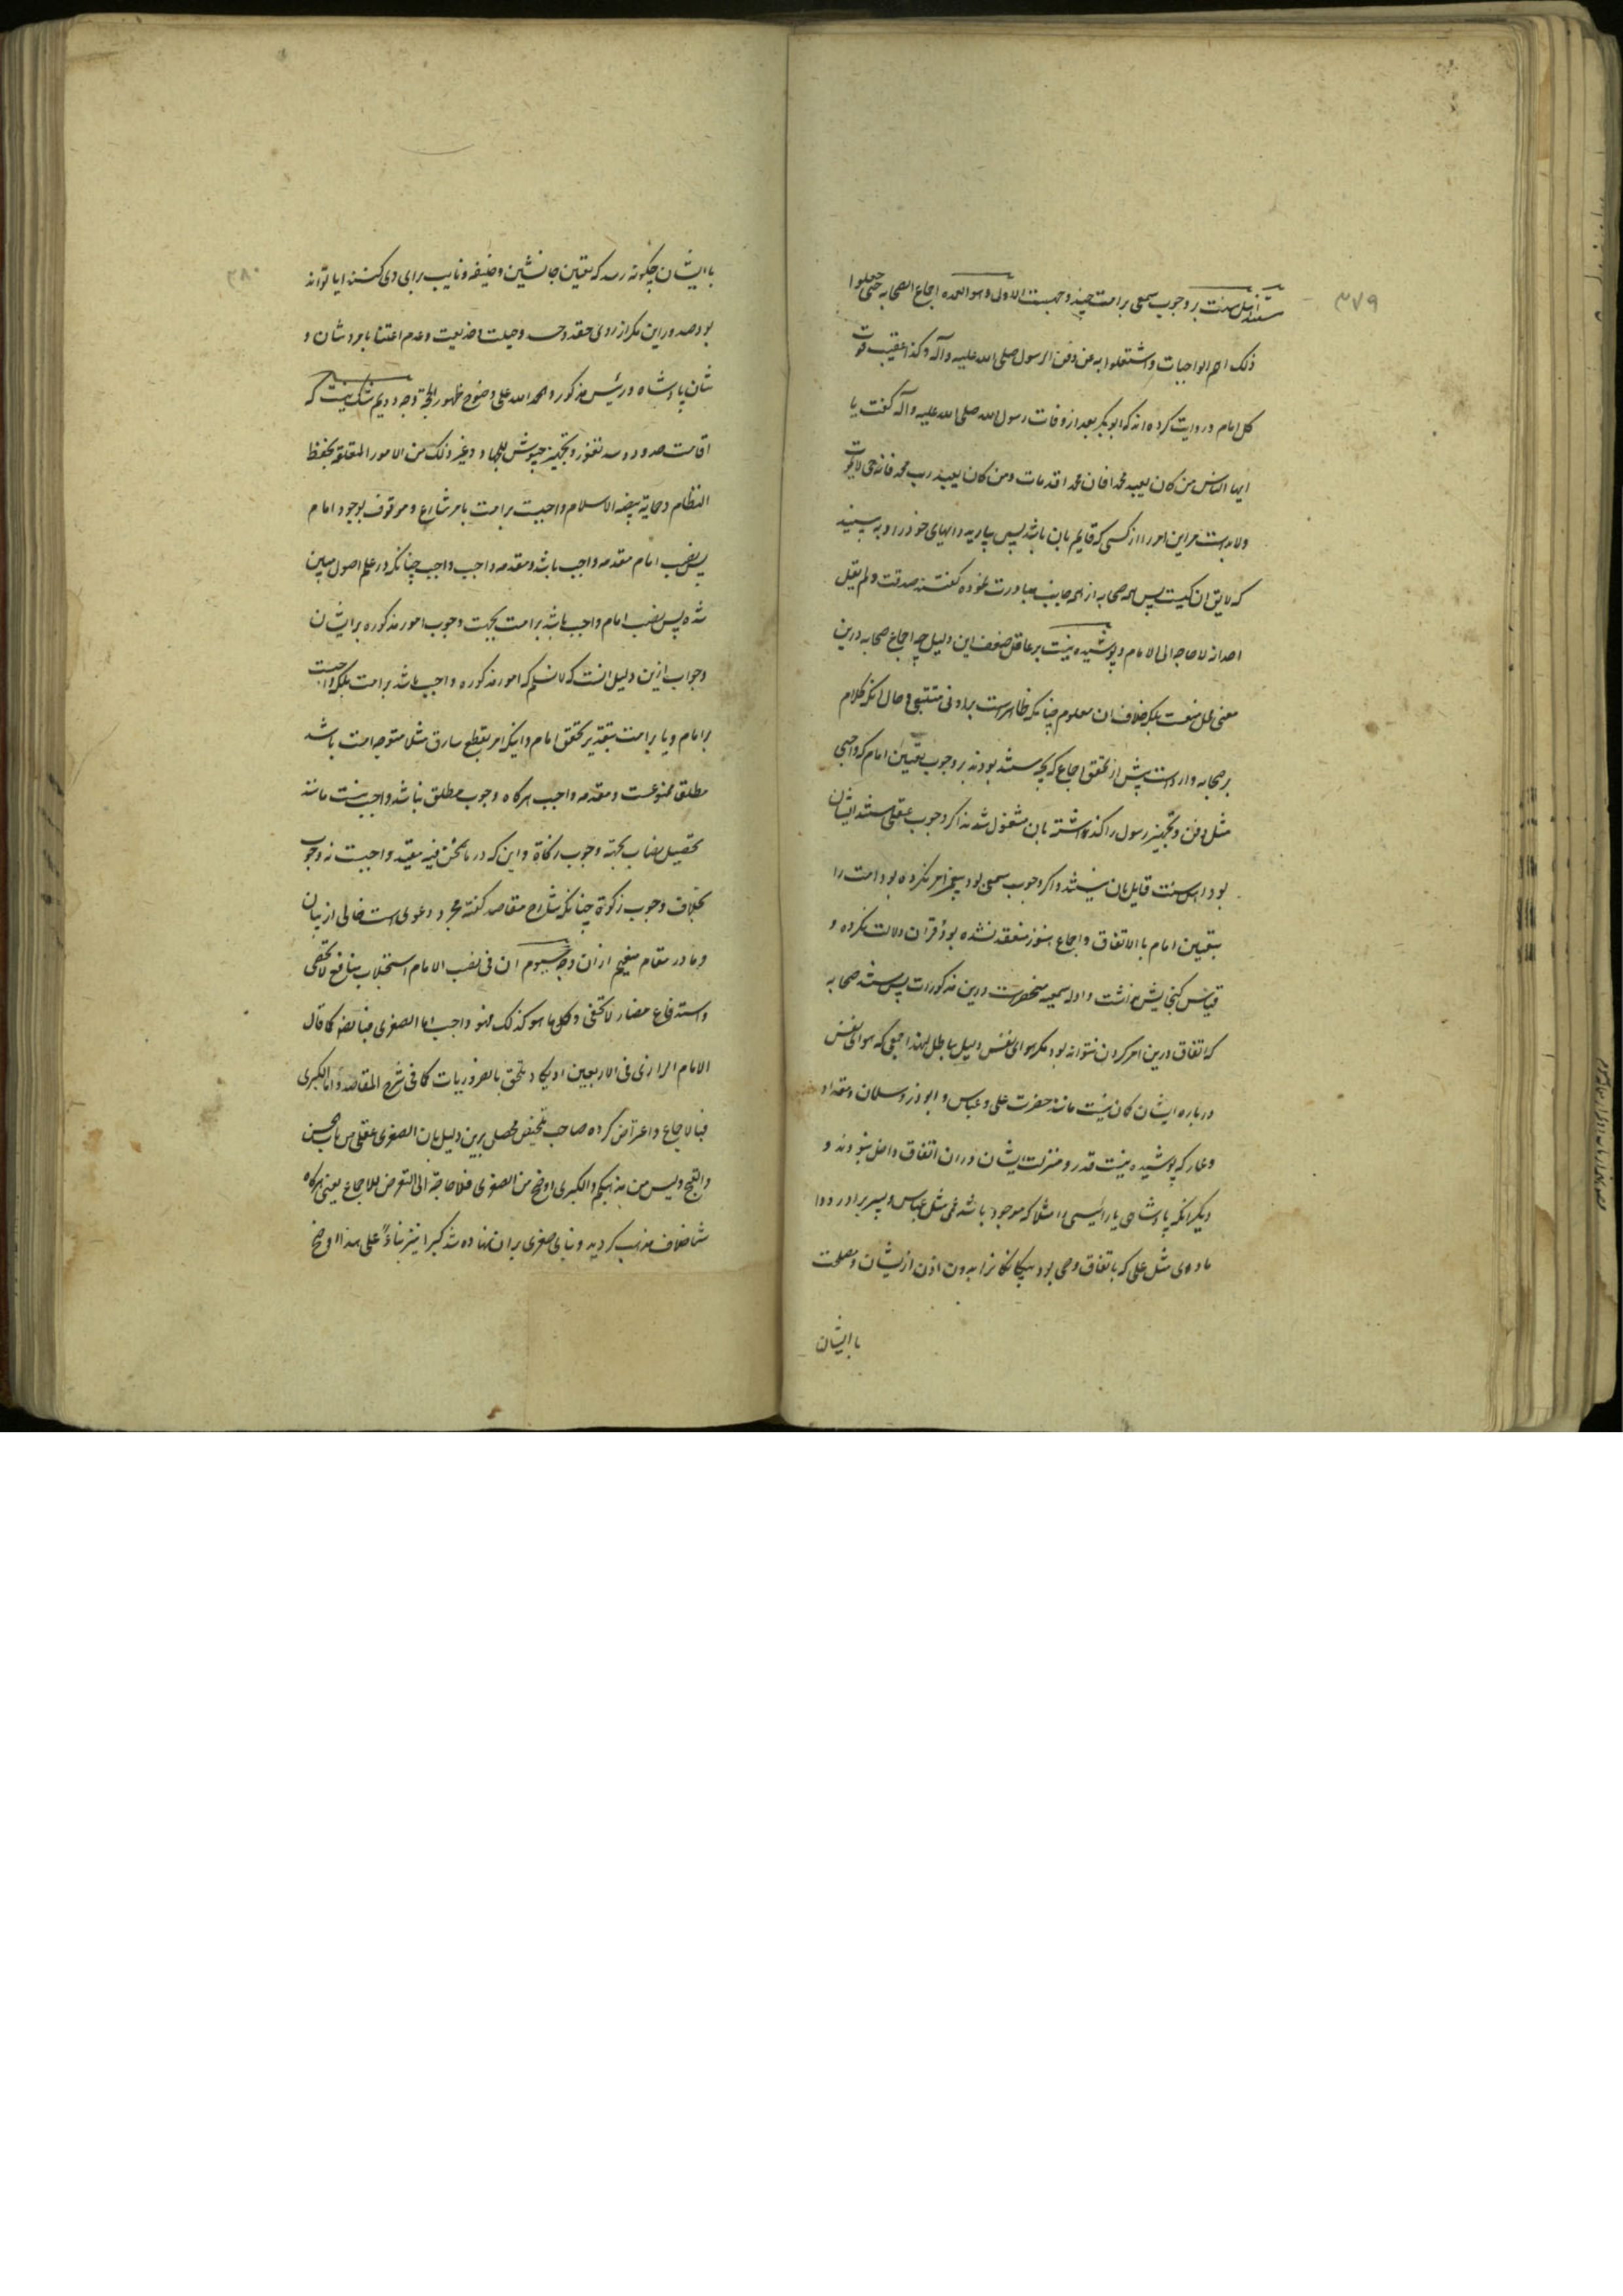 ۳۷۹
مستند اهل سنت بر وجوب سمعی بر امت چیز و جهست الاول و هو العمده اجماع الصحابه حتی جعلوا
ذلک اهم الواجبات و اشتغلوا به عن دفن الرسول صلی الله علیه و آله و کذا عقیب موت
کل امام و روایت کرده اند که ابوبکر بعد از وفات رسول الله صلی الله علیه و آله گفت یا
ایها الناس من کان یعبد محمدا فان محمدا قد مات و من کان یعبد رب محمد فانه حی لا یموت
و لابدست مر این امر را از کسی که قایم بان باشد پس بیارید رایهای خود را و به بینید
که لایق ان کیست پس همه صحابه از همه جانب مبادرت نموده گفتند صدقت و لم یقل
احد انه لا حاجه الی الامام و پوشیده نیست بر عاقل ضعف این دلیل چه اجماع صحابه درین
معنی باطل نیست بلکه خلاف ان معلوم چنانکه ظاهرست بر ادنی متتبعی و حال انکه کلام
بر صحابه واردست پیش از تحقق اجماع که بچه مستند بودند بر وجوب تعیین امام که واجبی
مثل دفن و تجهیز رسول را گذاشته بان مشغول شدند اگر وجوب عقلی مستند ایشان
بود اهل سنت قایل بان نیستند و اگر وجوب سمعی بود پیغمبر امر نکرده بود امت را
بتعیین امام بالاتفاق و اجماع هنوز منعقد نشده بود و قران دلالت نکرده و
قیاس گنجایش نداشت و ادله سمعیه منحصرست درین مذکورات پس مستند صحابه
که اتفاق درین امر کردن نتواند بود مگر هوای نفس و میل بباطل لهذا جمعی که هوای نفس
درباره ایشان گمان نیست مانند حضرت علی و عباس و ابوذر و سلمان و مقداد
و عمار که پوشیده نیست قدر و منزلت ایشان دران اتفاق داخل نبودند و
دیگر انکه پادشاهی یا رئیسی را مثلا که موجود باشد عمی مثل عباس و پسر برادر و داماد
و وصی مثل علی که باتفاق وصی بود بیگانگانرا بدون اذن ازیشان و مصلحت
با ایشان
۳۸۰
با ایشان چگونه رسد که تعیین جانشین و خلیفه و نایب برای وی کنند ایا تواند
بود صدور این مگر از روی حقد و حسد و حیلت و خدیعت و عدم اعتنا بامر و شان و
شان پادشاه و رئیس مذکور و الحمد الله علی وضوح ظهور الحجة وجه دویم شک نیست که
اقامت حدود و سد ثغور و تجهیز جیوش للجهاد و غیر ذلک من الامور المتعلقه بحفظ
النظام و حمایه بیضه الاسلام واجبست بر امت بامر شارع و موقوف بوجود امام
پس نصب امام مقدمه واجب باشد و مقدمه واجب واجب چنانکه در علم اصول مبین
شده پس نصب امام واجب باشد بر امت بجهت وجوب امور مذکوره بر ایشان
و جواب ازین دلیل انست که لا نسلم که امور مذکوره واجب باشد بر امت بلکه واجبست
بر امام و یا بر امت بتقدیر تحقق امام و اینکه امر بقطع سارق مثلا متوجه امت باشد
مطلقا ممنوعست و مقدمه واجب هرگاه وجوب مطلق نباشد واجب نیست مانند
تحصیل نصاب بجهة وجوب زکاة و این که در ما نحن فیه مقید واجبست نه وجوب
بخلاف وجوب زکوة چنانکه شارح مقاصد گفته مجرد دعوی است خالی از بیان
و ما در مقام منعیم ازان وجه سیوم ان فی نصب الامام استجلاب منافع لا تحصی
و استدفاع مضار لا تخفی و کل ما هو کذلک فهو واجب اما الصغری فبالضروره کما قال
الامام الرازی فی الاربعین او یکاد یلحق بالضروریات کما فی شرح المقاصد و اما الکبری
فبالاجماع و اعتراض کرده صاحب تلخیص محصل برین دلیل بان الصغری عقلی من باب الحسن
و القبح و لیس من مذهبکم و الکبری اوضح من الصغری فلا حاجة الی التعرض للاجماع یعنی هرگاه
شما خلاف مذهب کردید و بنای صغری بر ان نهاده شد کبرا نیز بناءً علی هذا اوضح